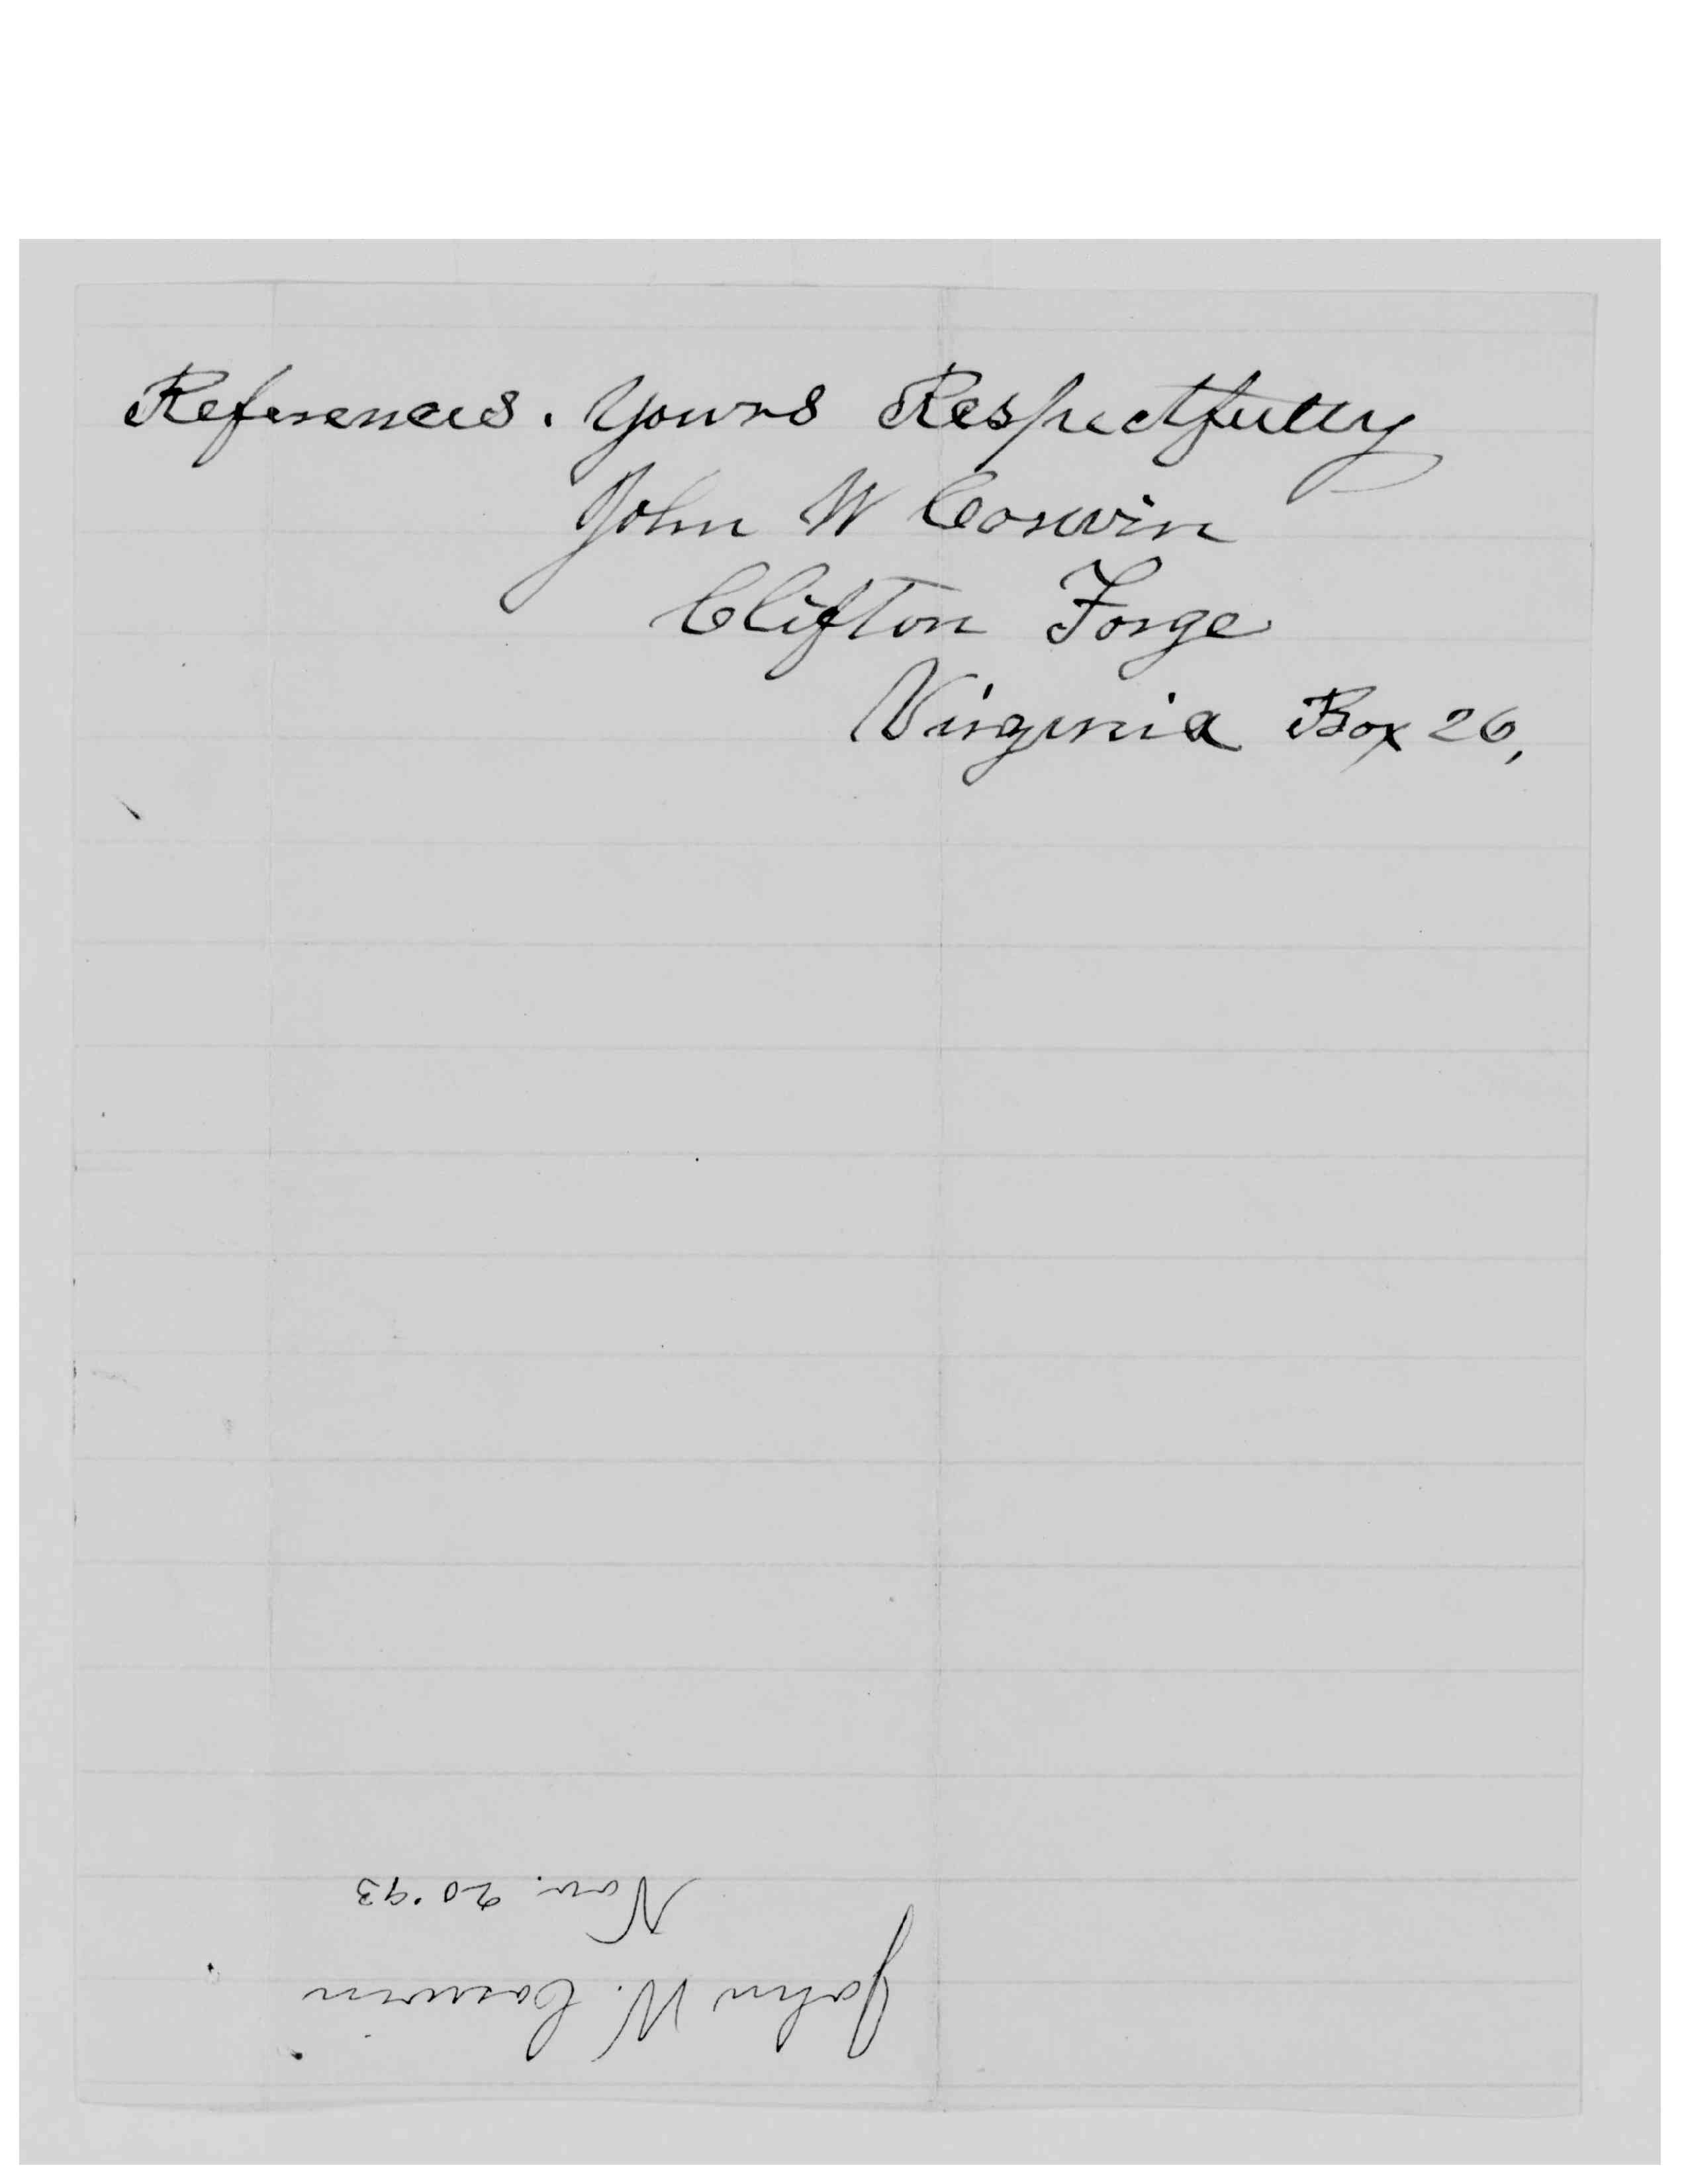 References. Yours Respectfully
John W Corwin
Clifton Forge
Virginia Box 26,
John W. Corwin
Nov. 20 '93